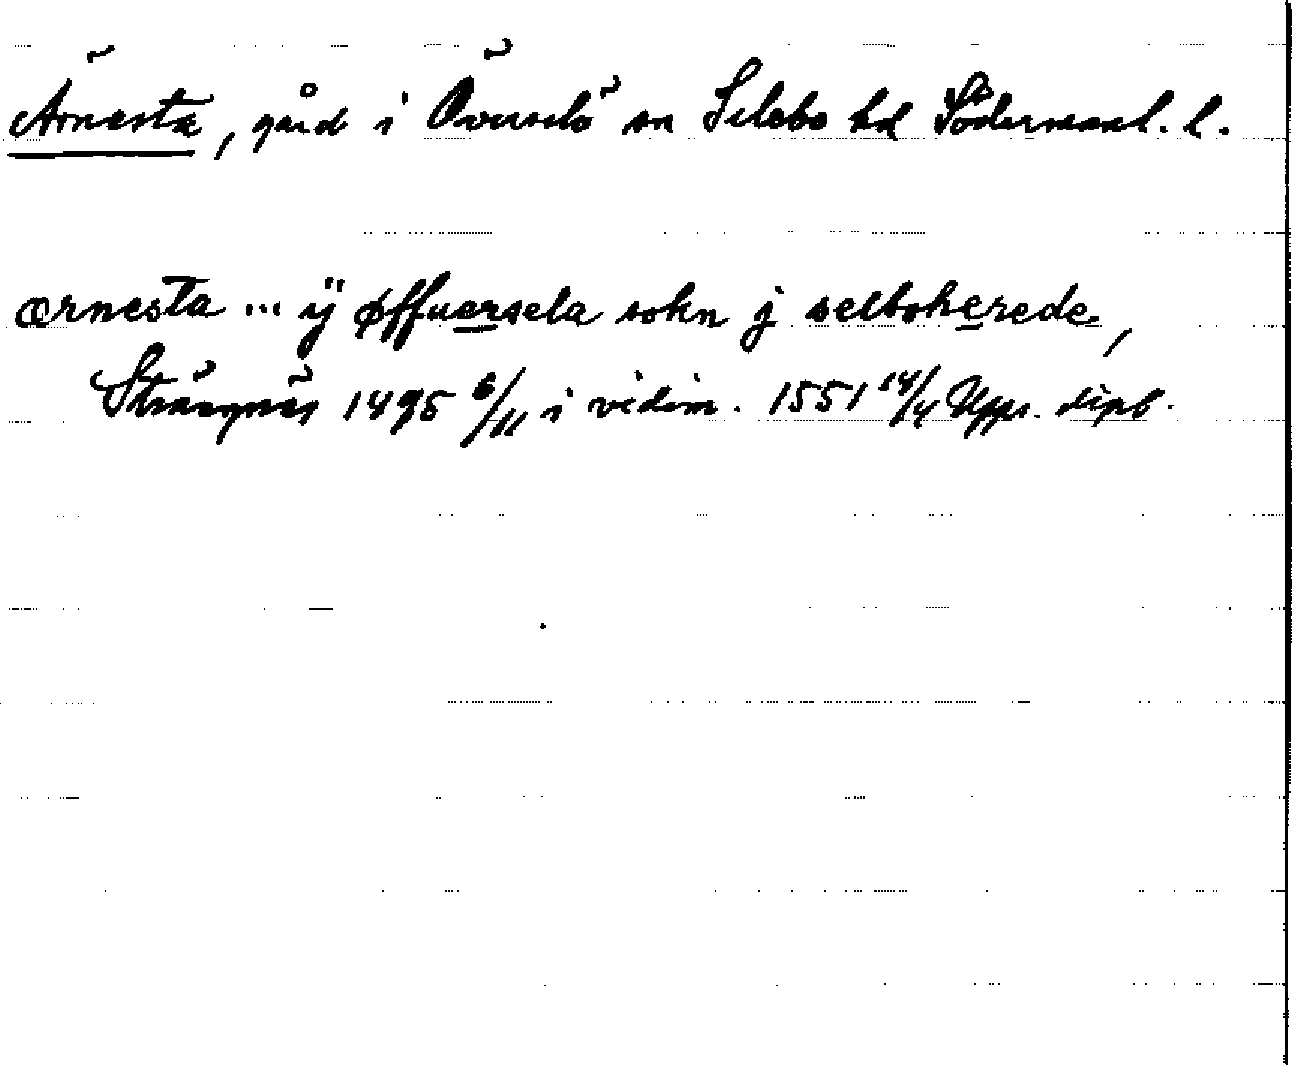 Ärnesta, gård i Överselö sn Selebo hd Södermanl. l.
ærnesta ... ÿ øffuersela sokn j selboherede,
Strängnäs 1495 6/11 i vidim. 1551 14/4 Upps. dipl.